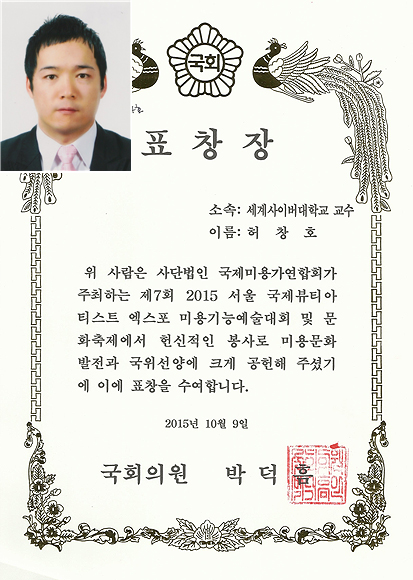 국회
표창장
소속: 세계사이버대학교 교수
이름: 허 창 호
위 사람은 사단법인 국제미용가연합회가
주최하는 제7회 2015 서울 국제뷰티아
티스트 엑스포 미용기능예술대회 및 문
화축제에서 헌신적인 봉사로 미용문화
발전과 국위선양에 크게 공헌해 주셨기
에 이에 표창을 수여합니다.
2015년 10월 9일
국회의원 박 덕 흠